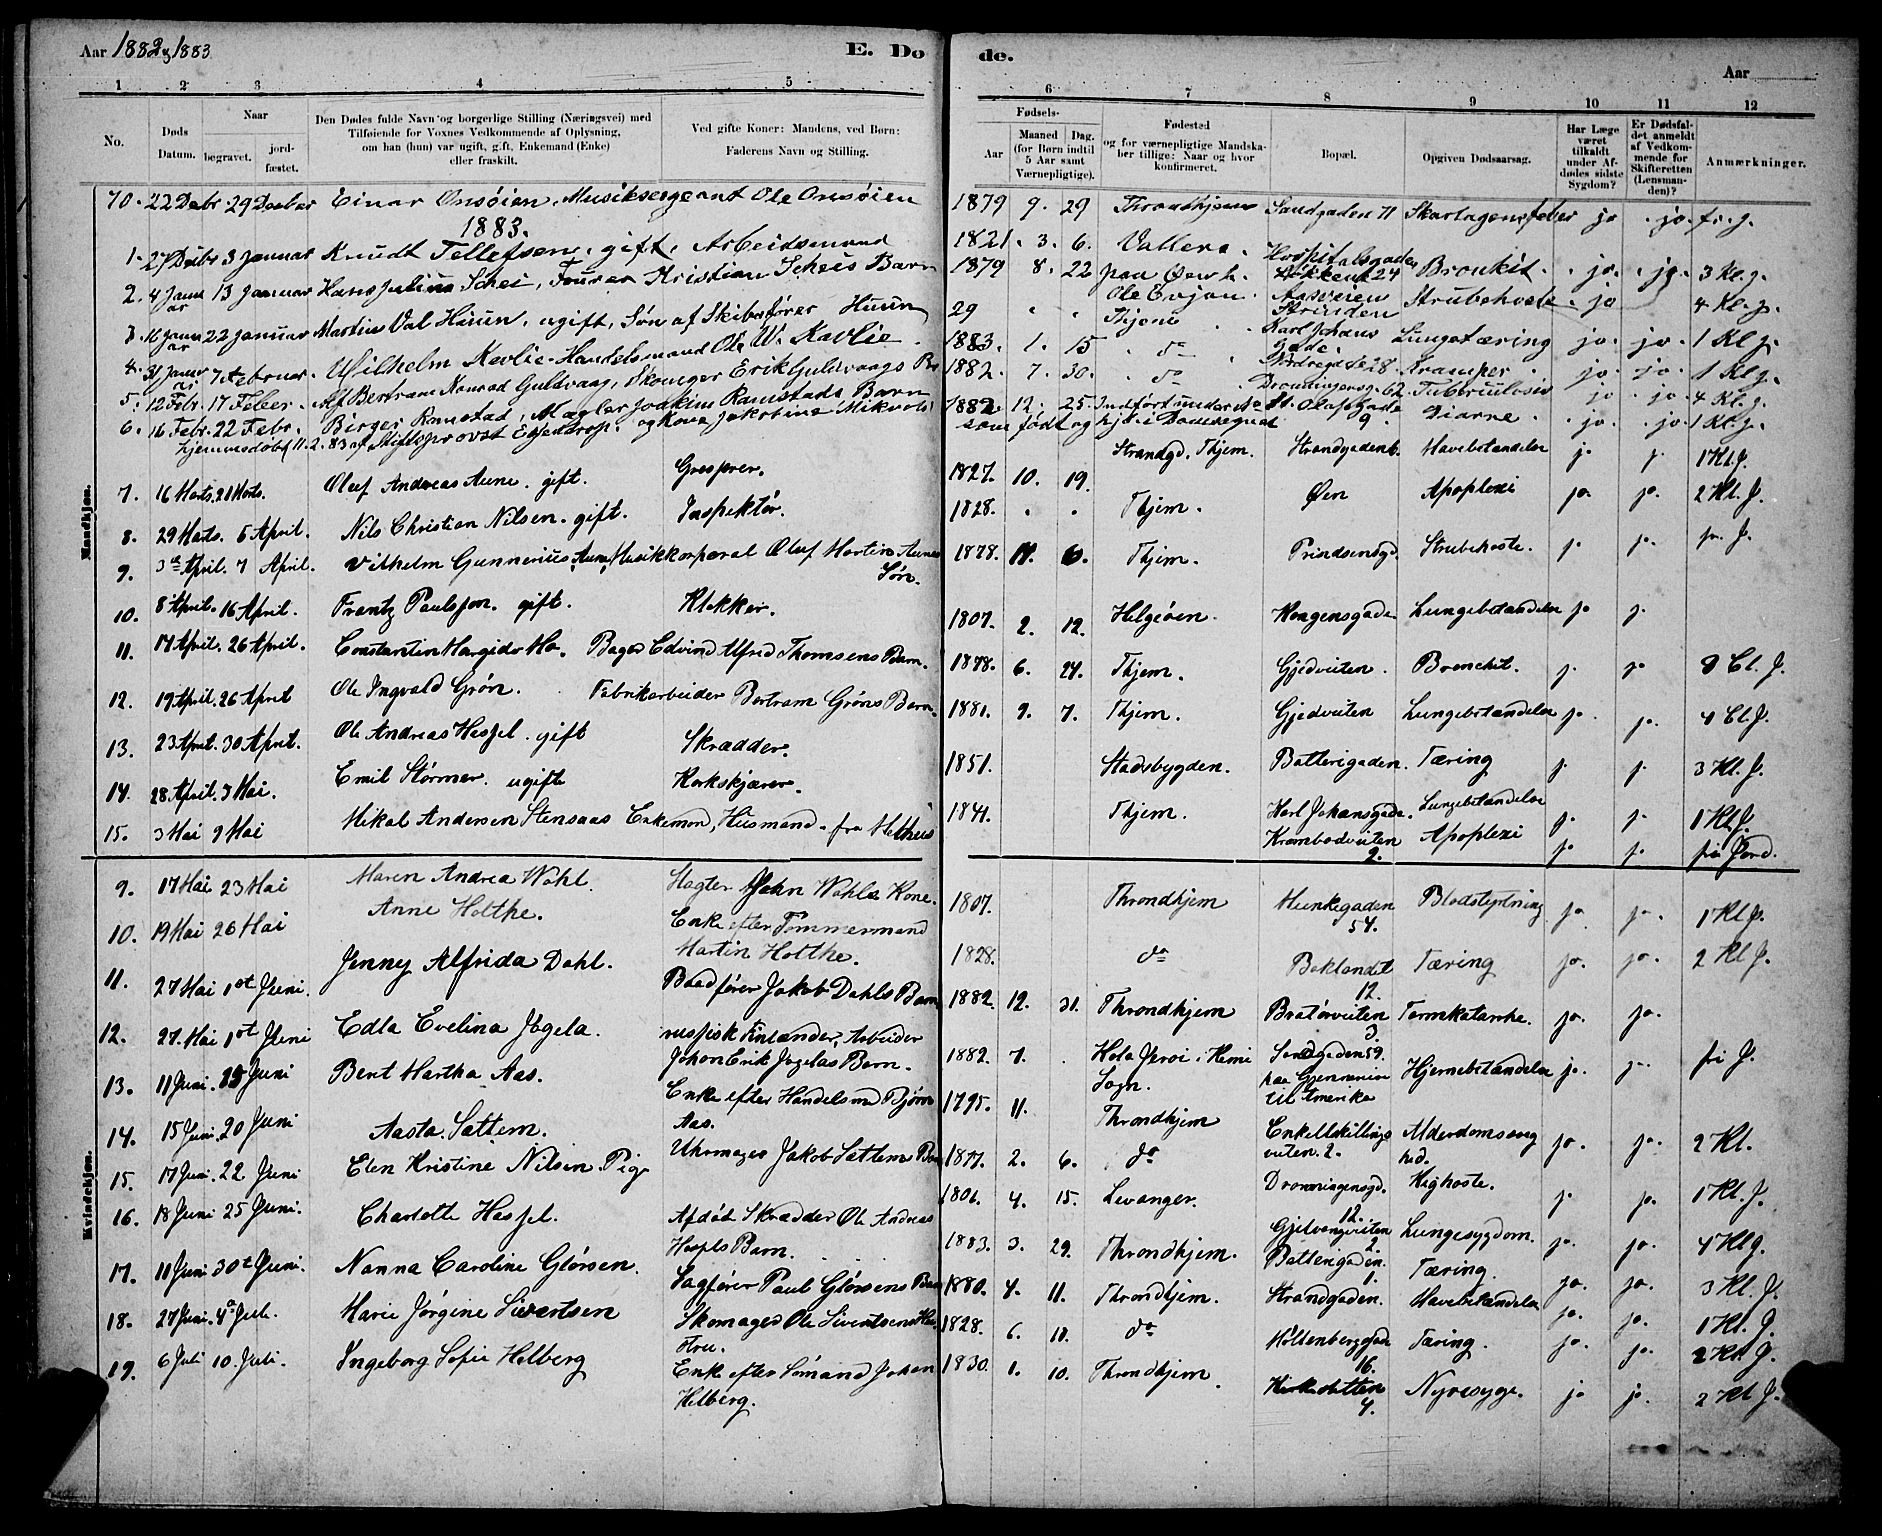 Aar 1882 & 1883
E. Dø
1 2 3 4 5
No.
Døds Datum.
Naar
begravet.
jord-
fæstet.
Den Dødes fulde Navn og borgerlige Stilling (Næringsvei) med
Tilføiende for Voxnes Vedkommende af Oplysning,
om han (hun) var ugift, gift, Enkemand (Enke)
eller fraskilt.
Ved gifte Koner: Mandens, ved Børn:
Faderens Navn og Stilling.
Mandkjøn.
70. 22 Debr. 29 Decbar Einar Onsøien, Musiksergeant Ole Onsøien
1883.
1. 27 Debr 3 Januar Knudt Tellefsen, gift, Arbeidsmand
2. 4 Janu ar 13 Januar Hans Julius Schei, Fourer Kristian Scheis Barn
3. 16 Janu ar 22 Januar Martius Val Huun, ugift, Søn af Skibsfører Huun
4. 31 Janu ar 7 Februar. Wilhelm Kavlie Handelsmand Ole W. Kavlie
5. 12 Febr. 17 Feber. Alf Bertram Konrad Guldvaag, Erik Guldvaags
6. 16 Febr. 22 Febr. Birger Ramstad, Mægler Joakim Ramstads Barn
hjemmedøbt 11.2.83 af Stiftsprovst og Kone Jakobine
7. 16 Marts. 21 Marts. Oluf Andreas Aune. gift. Grosserer.
8. 29 Marts. 5 April. Nils Christian Nilsen. gift. Inspektør.
9. 3 April. 7 April. Vilhelm Gunnerius Aune, Musikkorporal Oluf Martin Aunes
Søn.
10. 8 April. 16 April. Frantz Paulsson. gift. Klokker.
11. 17 April. 26 April. Constantin Bager Edvind Alfred Thomsens Barn.
12. 19 April. 26 April Ole Ingvald Grøn. Fabrikarbeider Bertram Grøns Barn.
13. 23 April. 30 April. Ole Andreas Hassel. gift Skrædder.
14. 28 April. 3 Mai. Emil Størmer. ugift Korkskjærer.
15. 3 Mai 9 Mai Mikal Andersen Stensaas Enkemand, Husmand. fra Melhus
Kvindekjøn.
9. 17 Mai 23 Mai Maren Andrea Wahl. Slagter John Wahls Kone.
10. 19 Mai 26 Mai Anne Holthe. Enke efter Tømmermand
Martin Holthe.
11. 27 Mai 1st Juni. Jenny Alfrida Dahl. Baadfører Jakob Dahls Barn
12. 27. Mai 1st Juni Edla Evelina Jogela. russisk Finlænder, Arbeider
Johan Erik Jogelas Barn.
13. 11 Juni. 15 Juni Berit Martha Aas. Enke efter Handelsmd Bjørn
Aas.
14. 15 Juni. 20 Juni Aasta Sættem. Uhrmager Jakob Sættems Barn
15. 17 Juni. 22 Juni Elen Kristine Nilsen Pige
16. 18 Juni 25 Juni. Charlotte Hassel. Afdød Skrædder Ole Andreas
Hassels Barn.
17. 11 Juni 30t Juni. Nanna Caroline Glørsen. Sagfører Paul Glørsens Barn
18. 27 Juni. 4 Juli. Marie Jørgine Sivertsen Skomager Ole Sivertsens Hus-
tru.
19. 6 Juli 10. Juli. Ingeborg Sofie Helberg Enke efter Sømand Johan
Helberg.
de.
Aar
6 7 8 9 10 11 12
Fødsels-
Aar
Maaned
(for Børn indtil
5 Aar samt
Værnepligtige).
Dag.
Fødested
og for værnepligtige Mandska-
ber tillige: Naar og hvor
konfirmeret.
Bopæl.
Opgiven Dødsaarsag.
Har Læge
været
tilkaldt
under Af-
dødes sidste
Sygdom?
Er Dødsfal-
det anmeldt
af Vedkom-
mende for
Skifteretten
(Lensman-
den)?
Anmærkninger.
1879 9. 29 Throndhjem Sandgaden 71 Skarlagensfeber jo jo. fr. j.
1821. 3. 6. Hospitalsgaden Bronkit. jo. jo. 3 Kl. j.
1879 8. 22 paa Øen Aasveien Strinden Strubehoste jo 4 Kl. j.
29 Thjem Karl Johans gade Lungetæring jo. jo. 1 Kl j.
1883. 1. 15 do Nordregd 28. Kramper jo. jo. 1 Kl j.
1882. 7. 30. do Dronningensg. 62. Tuberculosis jo jo. 4 Kl. j.
1882 12. 25. Indført under No St. Olafsgade 9. Diarrie jo. jo. 1 Kl. j.
som født og hjd. i
1827. 10. 19. Strandgd. Thjem. Strandgaden Mavebetændelse j. j. 1 Kl. J.
1828. Thjem. Øen Apoplexi jo. jo. 2 Kl. J.
1878 11. 6. Thjem. Prindsensgd. Strubehoste. j. jo. fr. J.
1807. 2. 12. Helgeøen. Kongensgade Lungebetændelse jo j.
1878. 6. 24. Thjem. Gjedveiten. Bronchit. j. jo 8 Cl. J.
1881. 9. 7. Thjem. Gjedveiten Lungebetændelse jo. jo. 4 Cl. J.
1851. Stadsbygden. Batterigaden. Tæring j. j. 3 Kl. J.
1841. Thjem. Karl Johansgade. Lungebetændelse j. j. 1 Kl. J.
Krambodveiten 2. Apoplexi jo j. fri Jord.
1807. Throndhjem Munkegaden 54. Blodstyrtning jo. jo. 1 Kl J.
1828. do Baklandet 12. Tæring jo. jo. 2 Kl J.
1882 12. 31. Throndhjem Bratørveiten 3. Tarmkatarrhe. jo. jo.
1882. 7. Kemi Sogn. Sandgaden 59. paa Gjennemreise til Amerika Hjernebetændelse jo. jo. fri J.
1795. 11. Throndhjem Enkeltskillings veiten. 2. Alderdomssvag hed. jo. jo. 2 Kl.
1877. 2. 6. do Dronningensgd. 12. Kighoste. j. jo. 1 Kl. J.
1806. 4. 15. Levanger. Gjelvangveiten 2. Lungesygdom. jo. jo. 4 Kl J.
1883. 3. 29. Throndhjem. Batterigaden. 1. Tæring. jo. jo. 3 Kl. J.
1880. 4. 11. Throndhjem. Strandgaden. Mavebetændelse jo. jo. 1 Kl. J.
1828. 6. 10. do Møllenberggade 16. Tæring. jo. jo. 2 Kl. J.
1830. 1. 10. Throndhjem. 4. Nyresyge. jo jo. 2 Kl J.